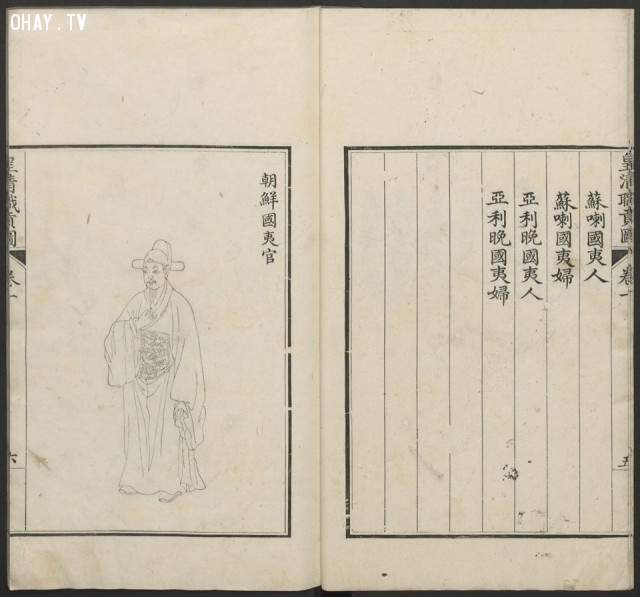 OHAY.TV
皇清職貢圖 卷一
五
蘇喇國夷人
蘇喇國夷婦
亞利晚國夷人
亞利晚國夷婦
朝鮮國夷官
皇清職貢圖 卷一
六